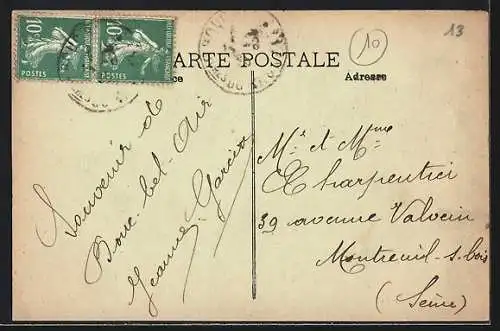 10
POSTES
10
13
CARTE POSTALE
Adresse
Souvenir de
Bouc-bel-Air
Jeanne Garcin
Mr et Mme
Charpentier
39 avenue
Montreuil-s-bois
(Seine)